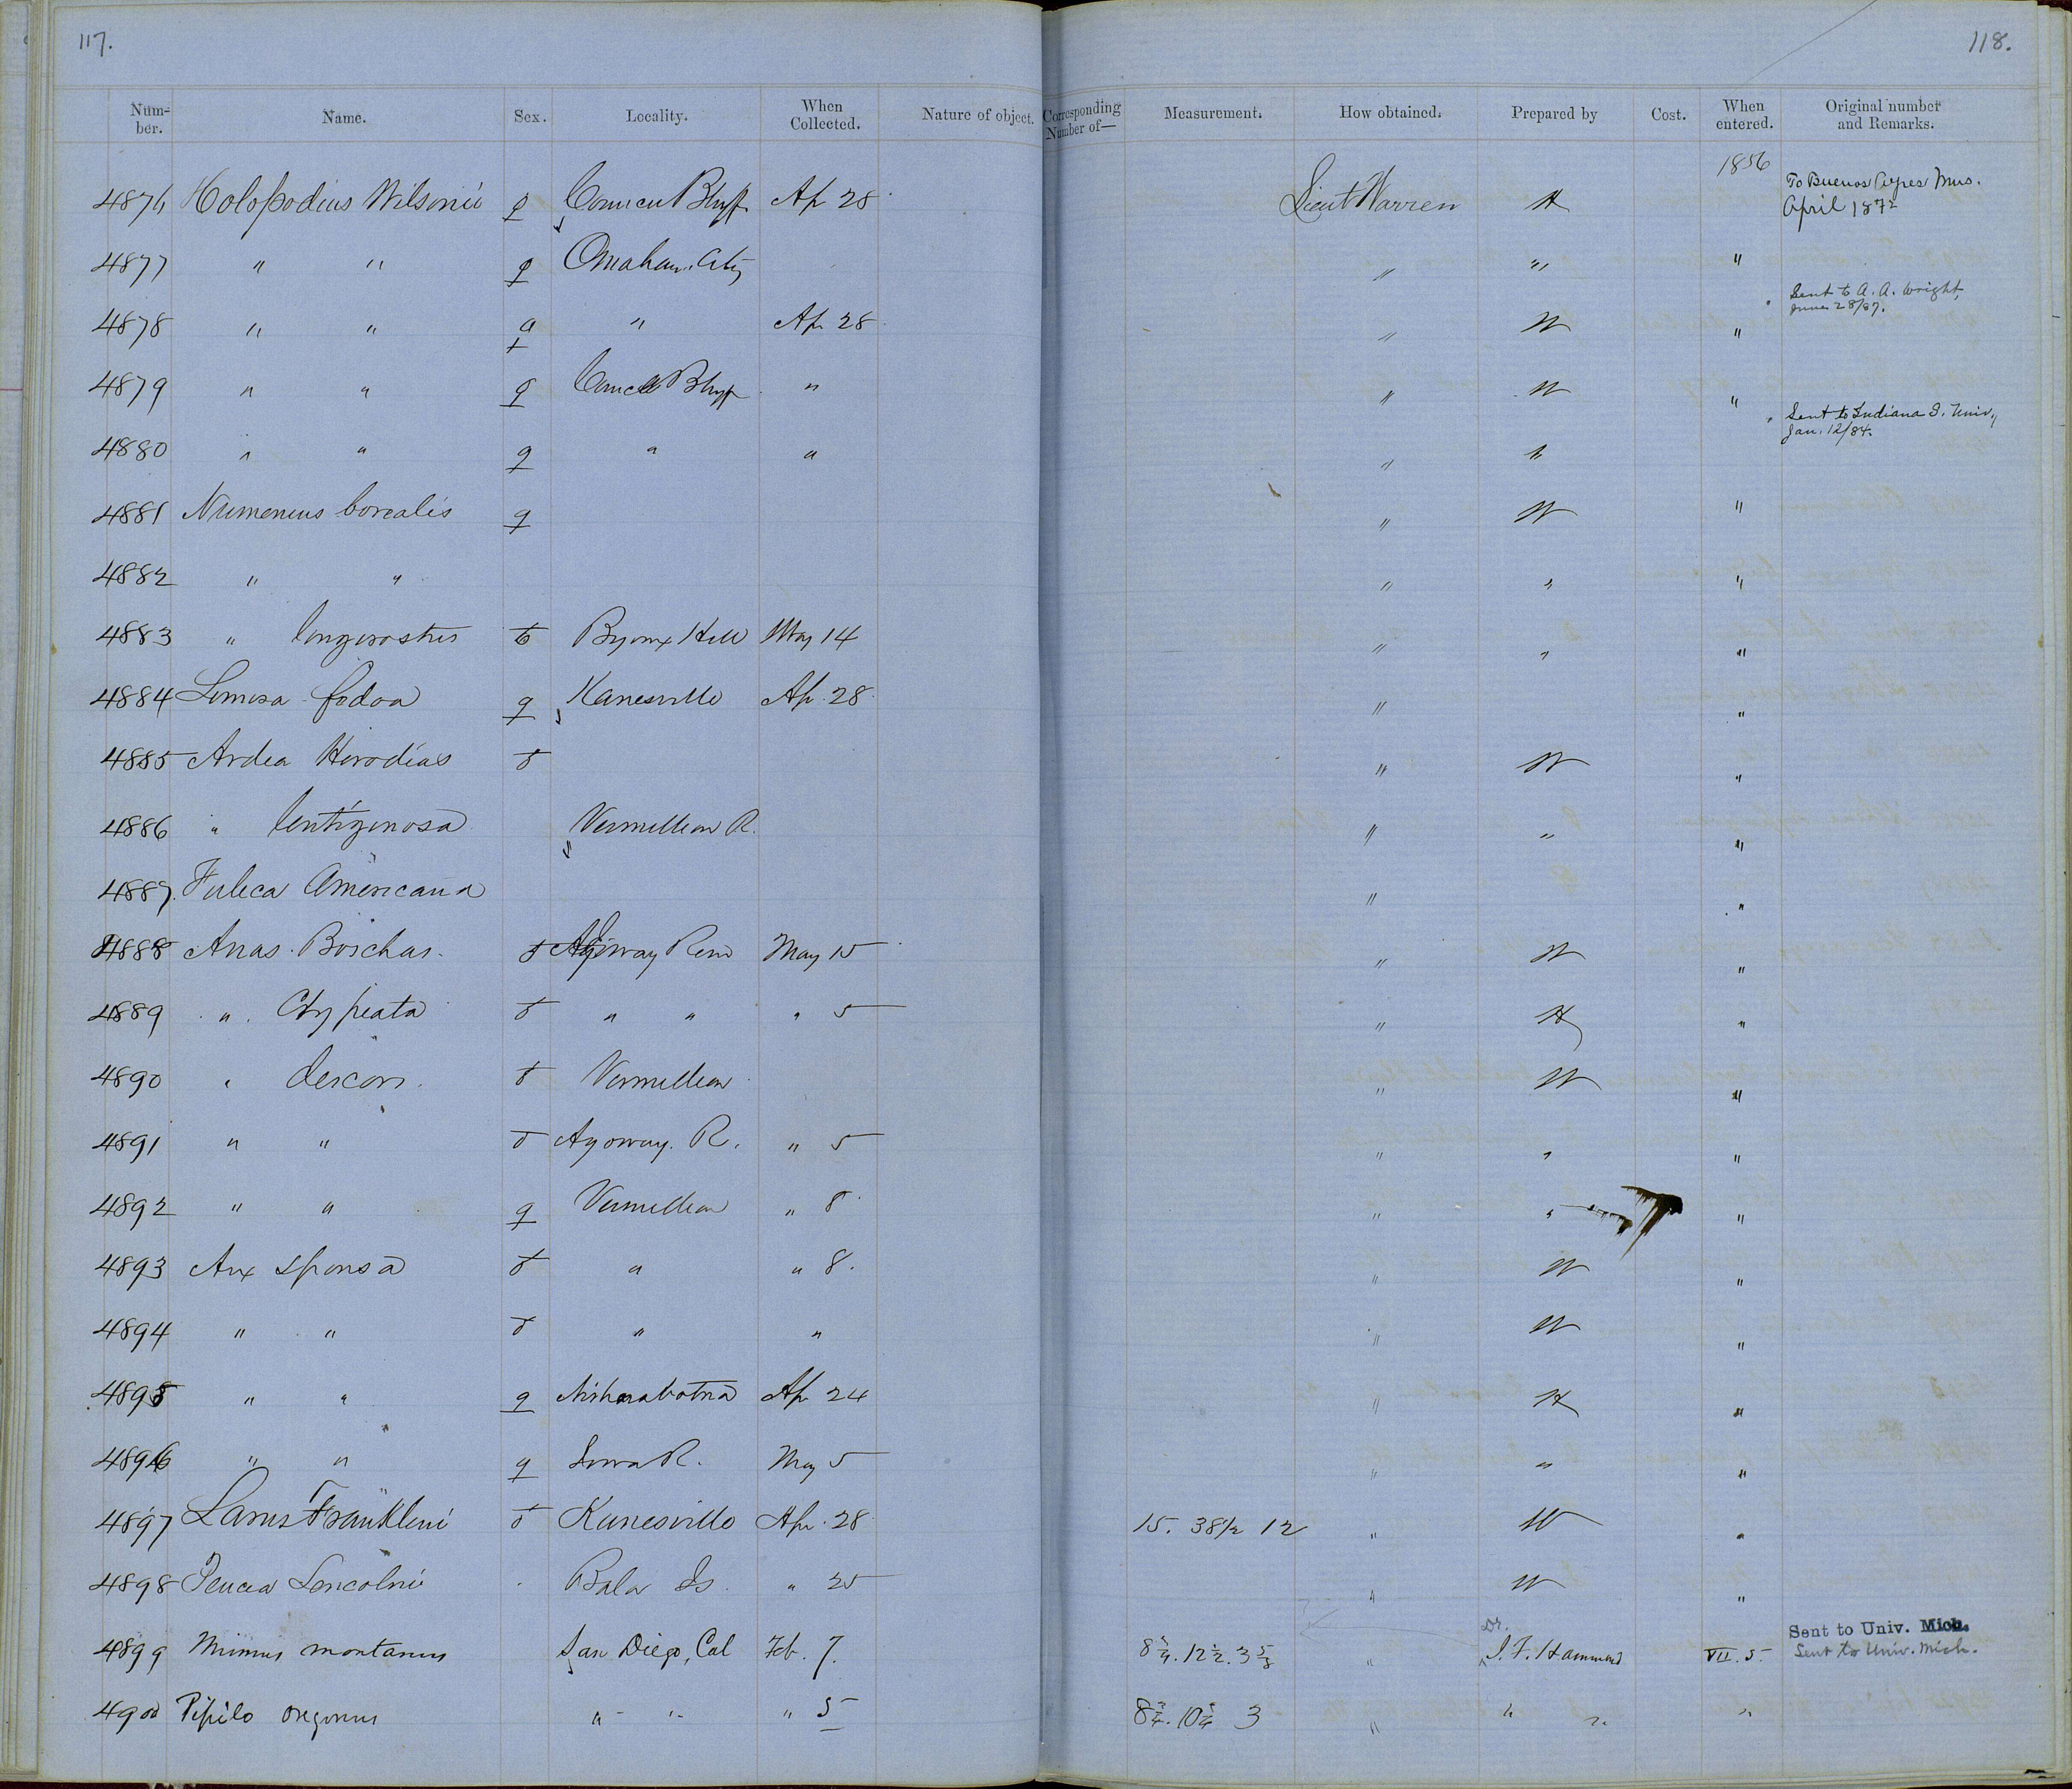 117. 118.
Number. Name. Sex. Locality. When Collected. Nature of object. Corresponding Number of— Measurement. How obtained. Prepared by Cost. When entered. Original number and Remarks.
1856
4876 Holopodius Wilsonii ♀ Council Bluff Ap 28 Lieut Warren H To Buenos Ayres Mus. April 1872
4877 " " ♀ Omahaw City " " "
4878 " " ♀ " Ap 28 " W " Sent to A. A. Wright, June 28/87.
4879 " " ♀ Council Bluff " " W "
4880 " " ♀ " " " " Sent to Indiana S. Univ., Jan. 12/84.
4881 Numenius borealis ♀ " W "
4882 " " " " "
4883 " longirostris ♂ Byonx Hill May 14 " " "
4884 Limosa fedoa ♀ Kanesville Ap. 28 " "
4885 Ardea Herodias ♂ " W "
4886 " lentiginosa Vermillion R. " " "
4887. Fulica Americana " "
4888 Anas Boschas. ♂ Ayoway River May 15 " W "
4889 " Clypeata ♂ " " " 5 " H "
4890 " discors. ♂ Vermillion " W "
4891 " " ♂ Ayoway. R. " 5 " " "
4892 " " ♀ Vermillion " 8 " " "
4893 Aix sponsa ♂ " " 8. " W "
4894 " " ♂ " " " W "
4895 " " ♀ Nishnabotna Ap 24 " H "
4896 " " ♀ Iowa R. May 5 " " "
4897 Larus Franklini ♂ Kanesville Ap. 28 15. 38 1/2 12 " W "
4898 Peucea Lincolnii Bald Is " 25 " W "
4899 Mimus montanus San Diego, Cal Feb. 7. 8 3/4. 12 1/2. 3 5/8 " Dr. J. F. Hammond VII. 5. Sent to Univ. Mich.
Sent to Univ. Mich.
4900 Pipilo oregonus " " " 5 8 3/4. 10 1/4 3 " " " "